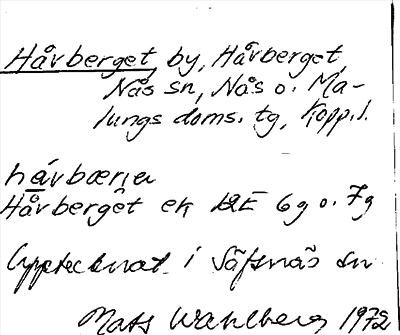 Håvberget by, Håvberget,
Nås sn, Nås o. Ma-
lungs doms. tg, Kopp. l.
håvbærjɐ
Håvberget ek 12E 6g o. 7g
Upptecknat i Säfsnäs sn
Mats Wahlberg 1972